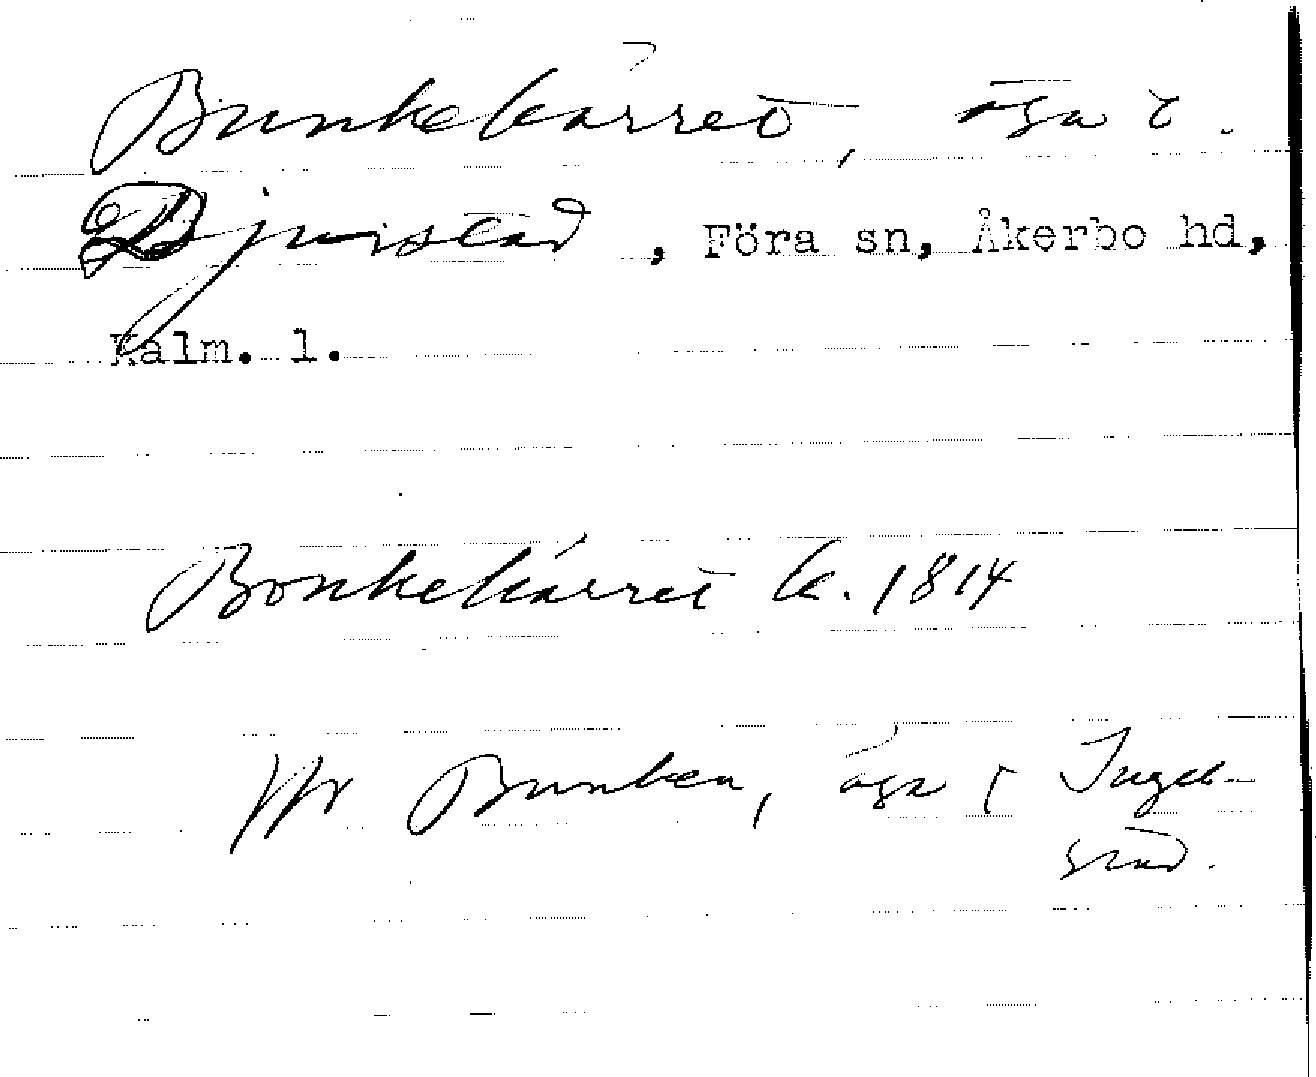 Bunkekärret, äga i
Djurstad, Föra sn, Åkerbo hd,
Kalm. l.
Bonkekärret k. 1814
Jfr Bunken, äga i Inget-
stad.